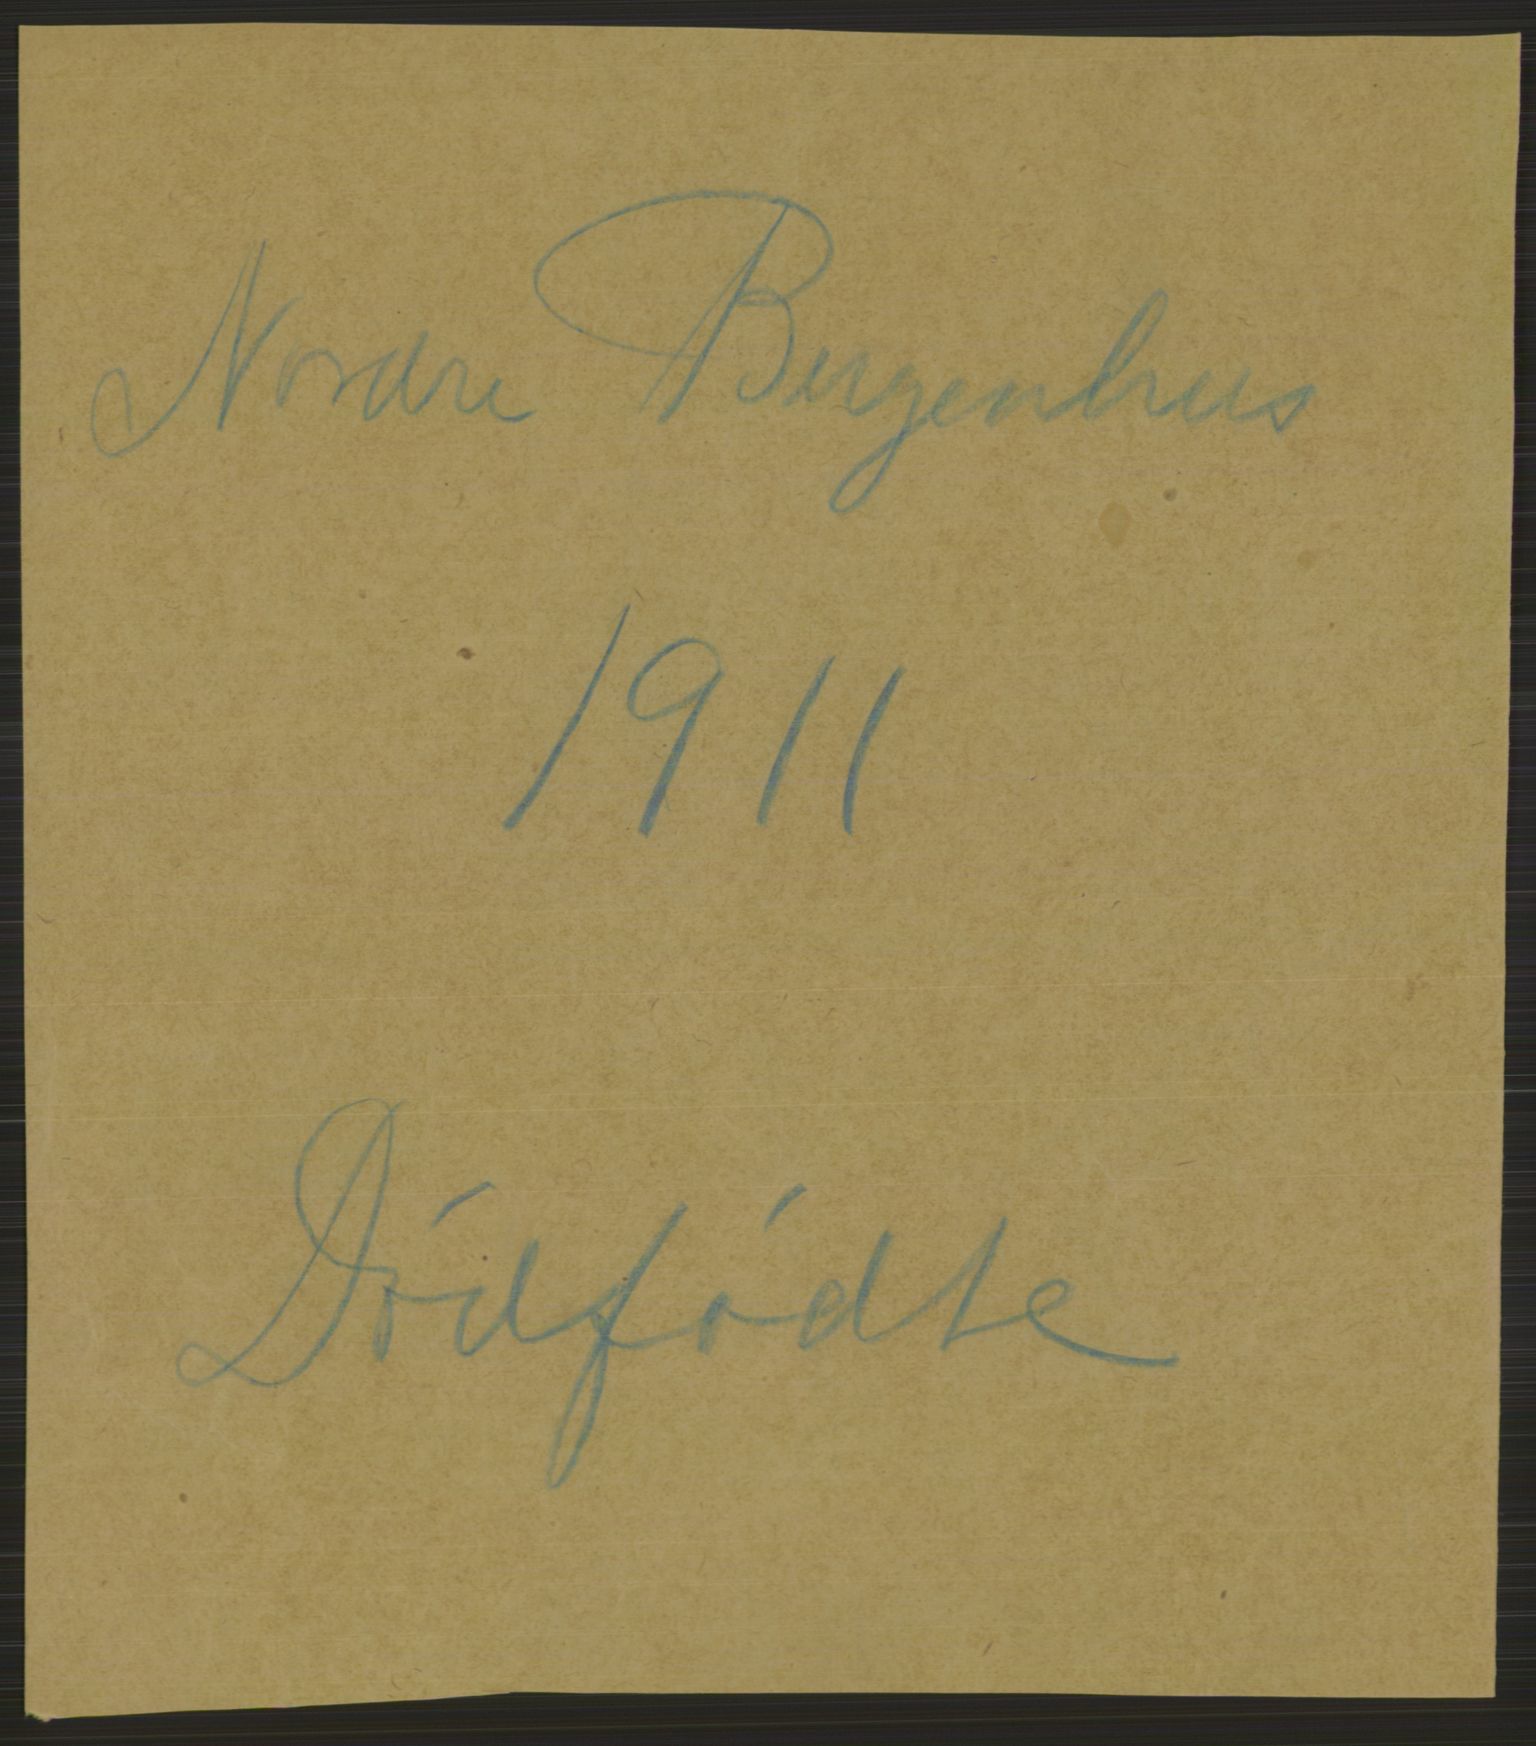 Nordre Bergenhus
1911
Dödfödte